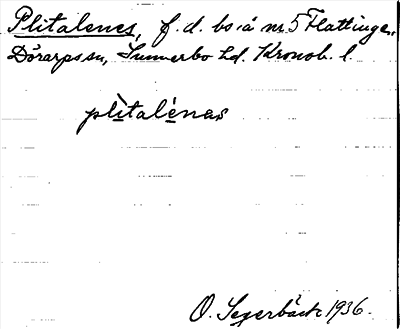 Plitalenes, f. d. bs å nr. 5 Flattinge,
Dörarps sn, Sunnerbo hd. Kronob. l.
plìtalénas
O. Segerbäck 1936.